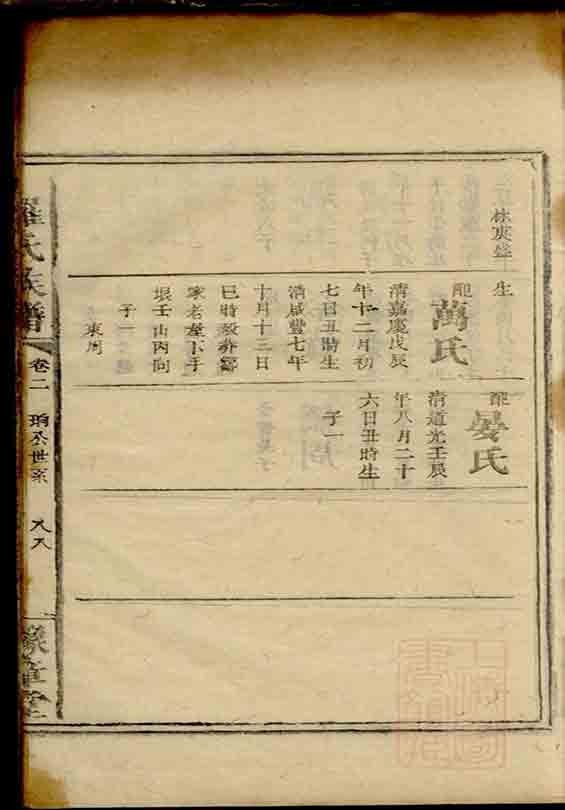 林庚
生
配
萬氏
清嘉慶戊辰
年十二月初
七日丑時生
清咸豐七年
十月十三日
巳時歿葬
家老屋下手
垠壬山丙向
子一
東周
配
晏氏
清道光壬辰
年八月二十
六日丑時生
子一
羅氏族譜
卷二
世系
豫章堂